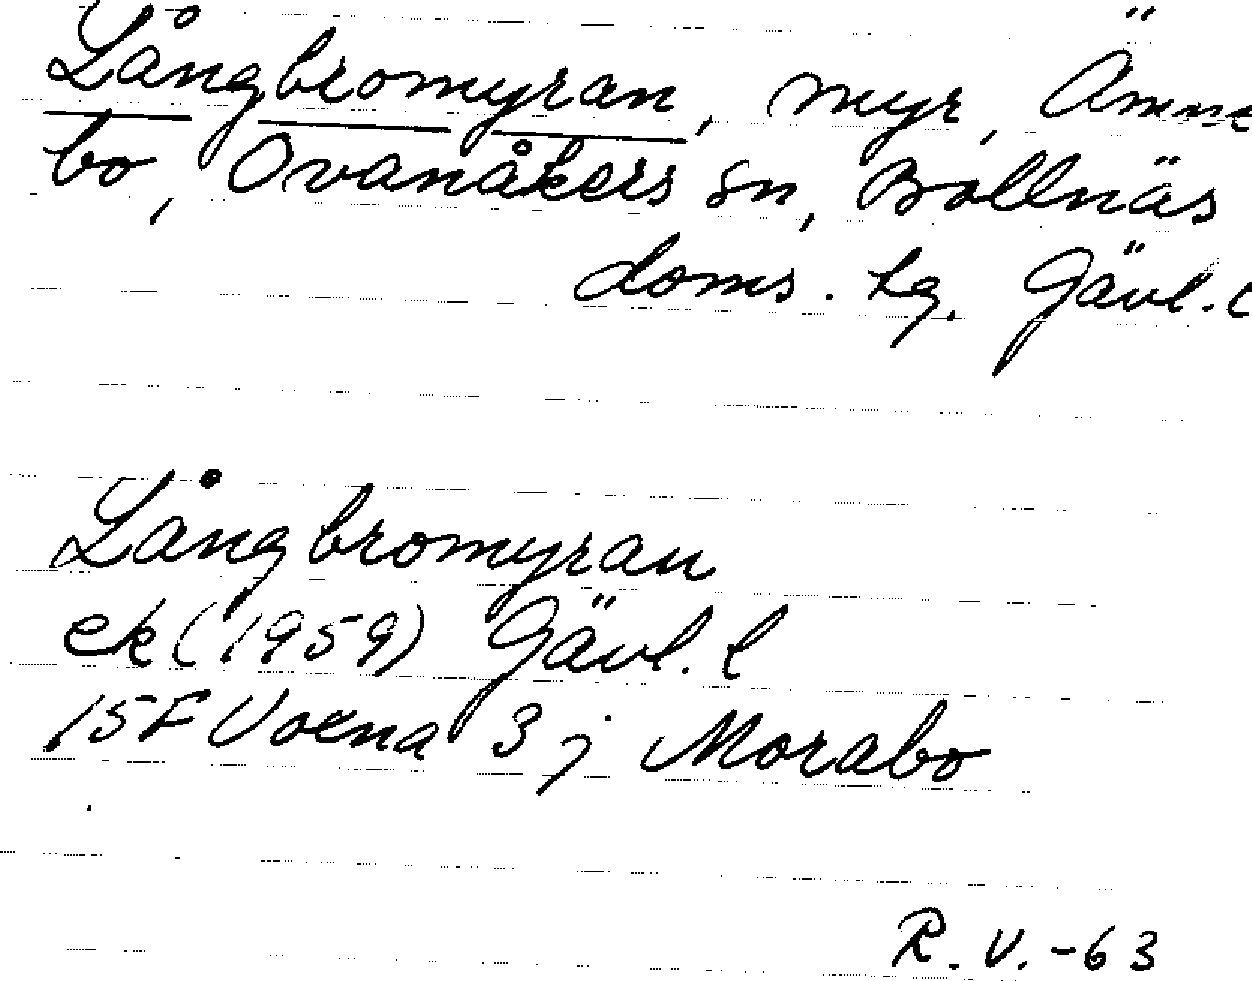 Långbromyran, myr, Ämne
bo, Ovanåkers sn, Bollnäs
doms. hg. Gävl. l
Långbromyran
ek (1959) Gävl. l
15F Voxna 3 j Morabo
R. V. -63